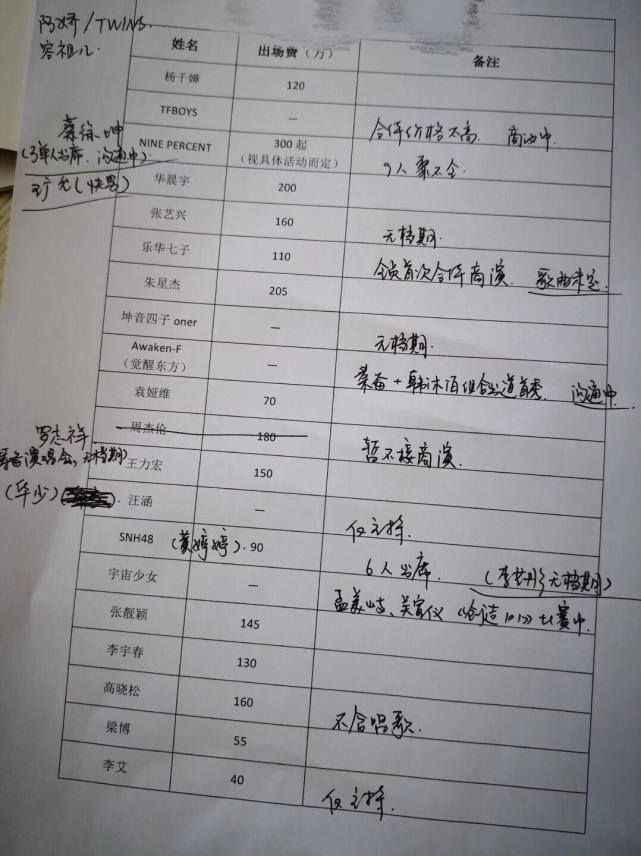 阿娇/TWINS.
容祖儿.
姓名 出场费（万） 备注
杨千嬅 120
TFBOYS — 合体价格不高. 商洽中.
蔡徐坤
(单人出席. 沟通中).
NINE PERCENT 300 起
（视具体活动而定） 9人聚不全.
(快男)
华晨宇 200
张艺兴 160 无档期.
乐华七子 110 全员首次合体商演. 歌曲未定.
朱星杰 205
坤音四子 oner — 无档期.
Awaken-F
（觉醒东方） — 秦奋+韩沐伯组合出道首秀. 沟通中.
袁娅维 70
周杰伦 180 暂不接商演.
罗志祥
演唱会,无档期)
王力宏 150
(华少)
汪涵 — 仅主持.
SNH48 (黄婷婷). 90 6人出席. (李艺彤无档期)
宇宙少女 — 孟美岐、吴宣仪《创造101》比赛中.
张靓颖 145
李宇春 130
高晓松 160 不含唱歌.
梁博 55
李艾 40 仅主持.